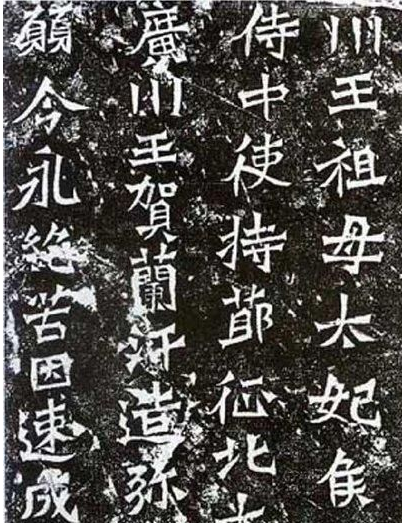 川王祖母太妃侯
侍中使持節征北大
廣川王賀蘭汗造弥
願今永絶苦因速成